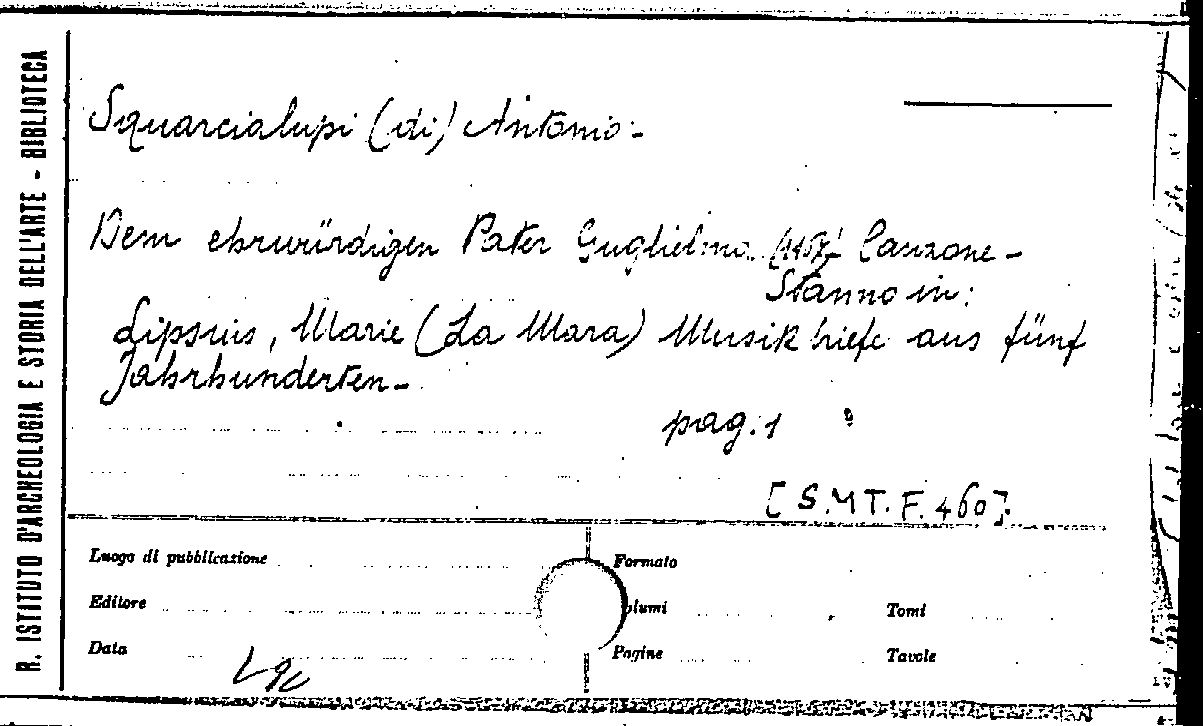 R. ISTITUTO D'ARCHEOLOGIA E STORIA DELL'ARTE - BIBLIOTECA
Squarcialupi (di) Antonio -
Dem ehrwürdigen Pater Guglielmo (1467) Canzone -
Stanno in:
Lipsius, Marie (La Mara) Musikbriefe aus fünf
Jahrhunderten -
pag: 1
[S.M.T.F. 460].
Luogo di pubblicazione
Formato
Editore
olumi
Tomi
Data
Pagine
Tavole